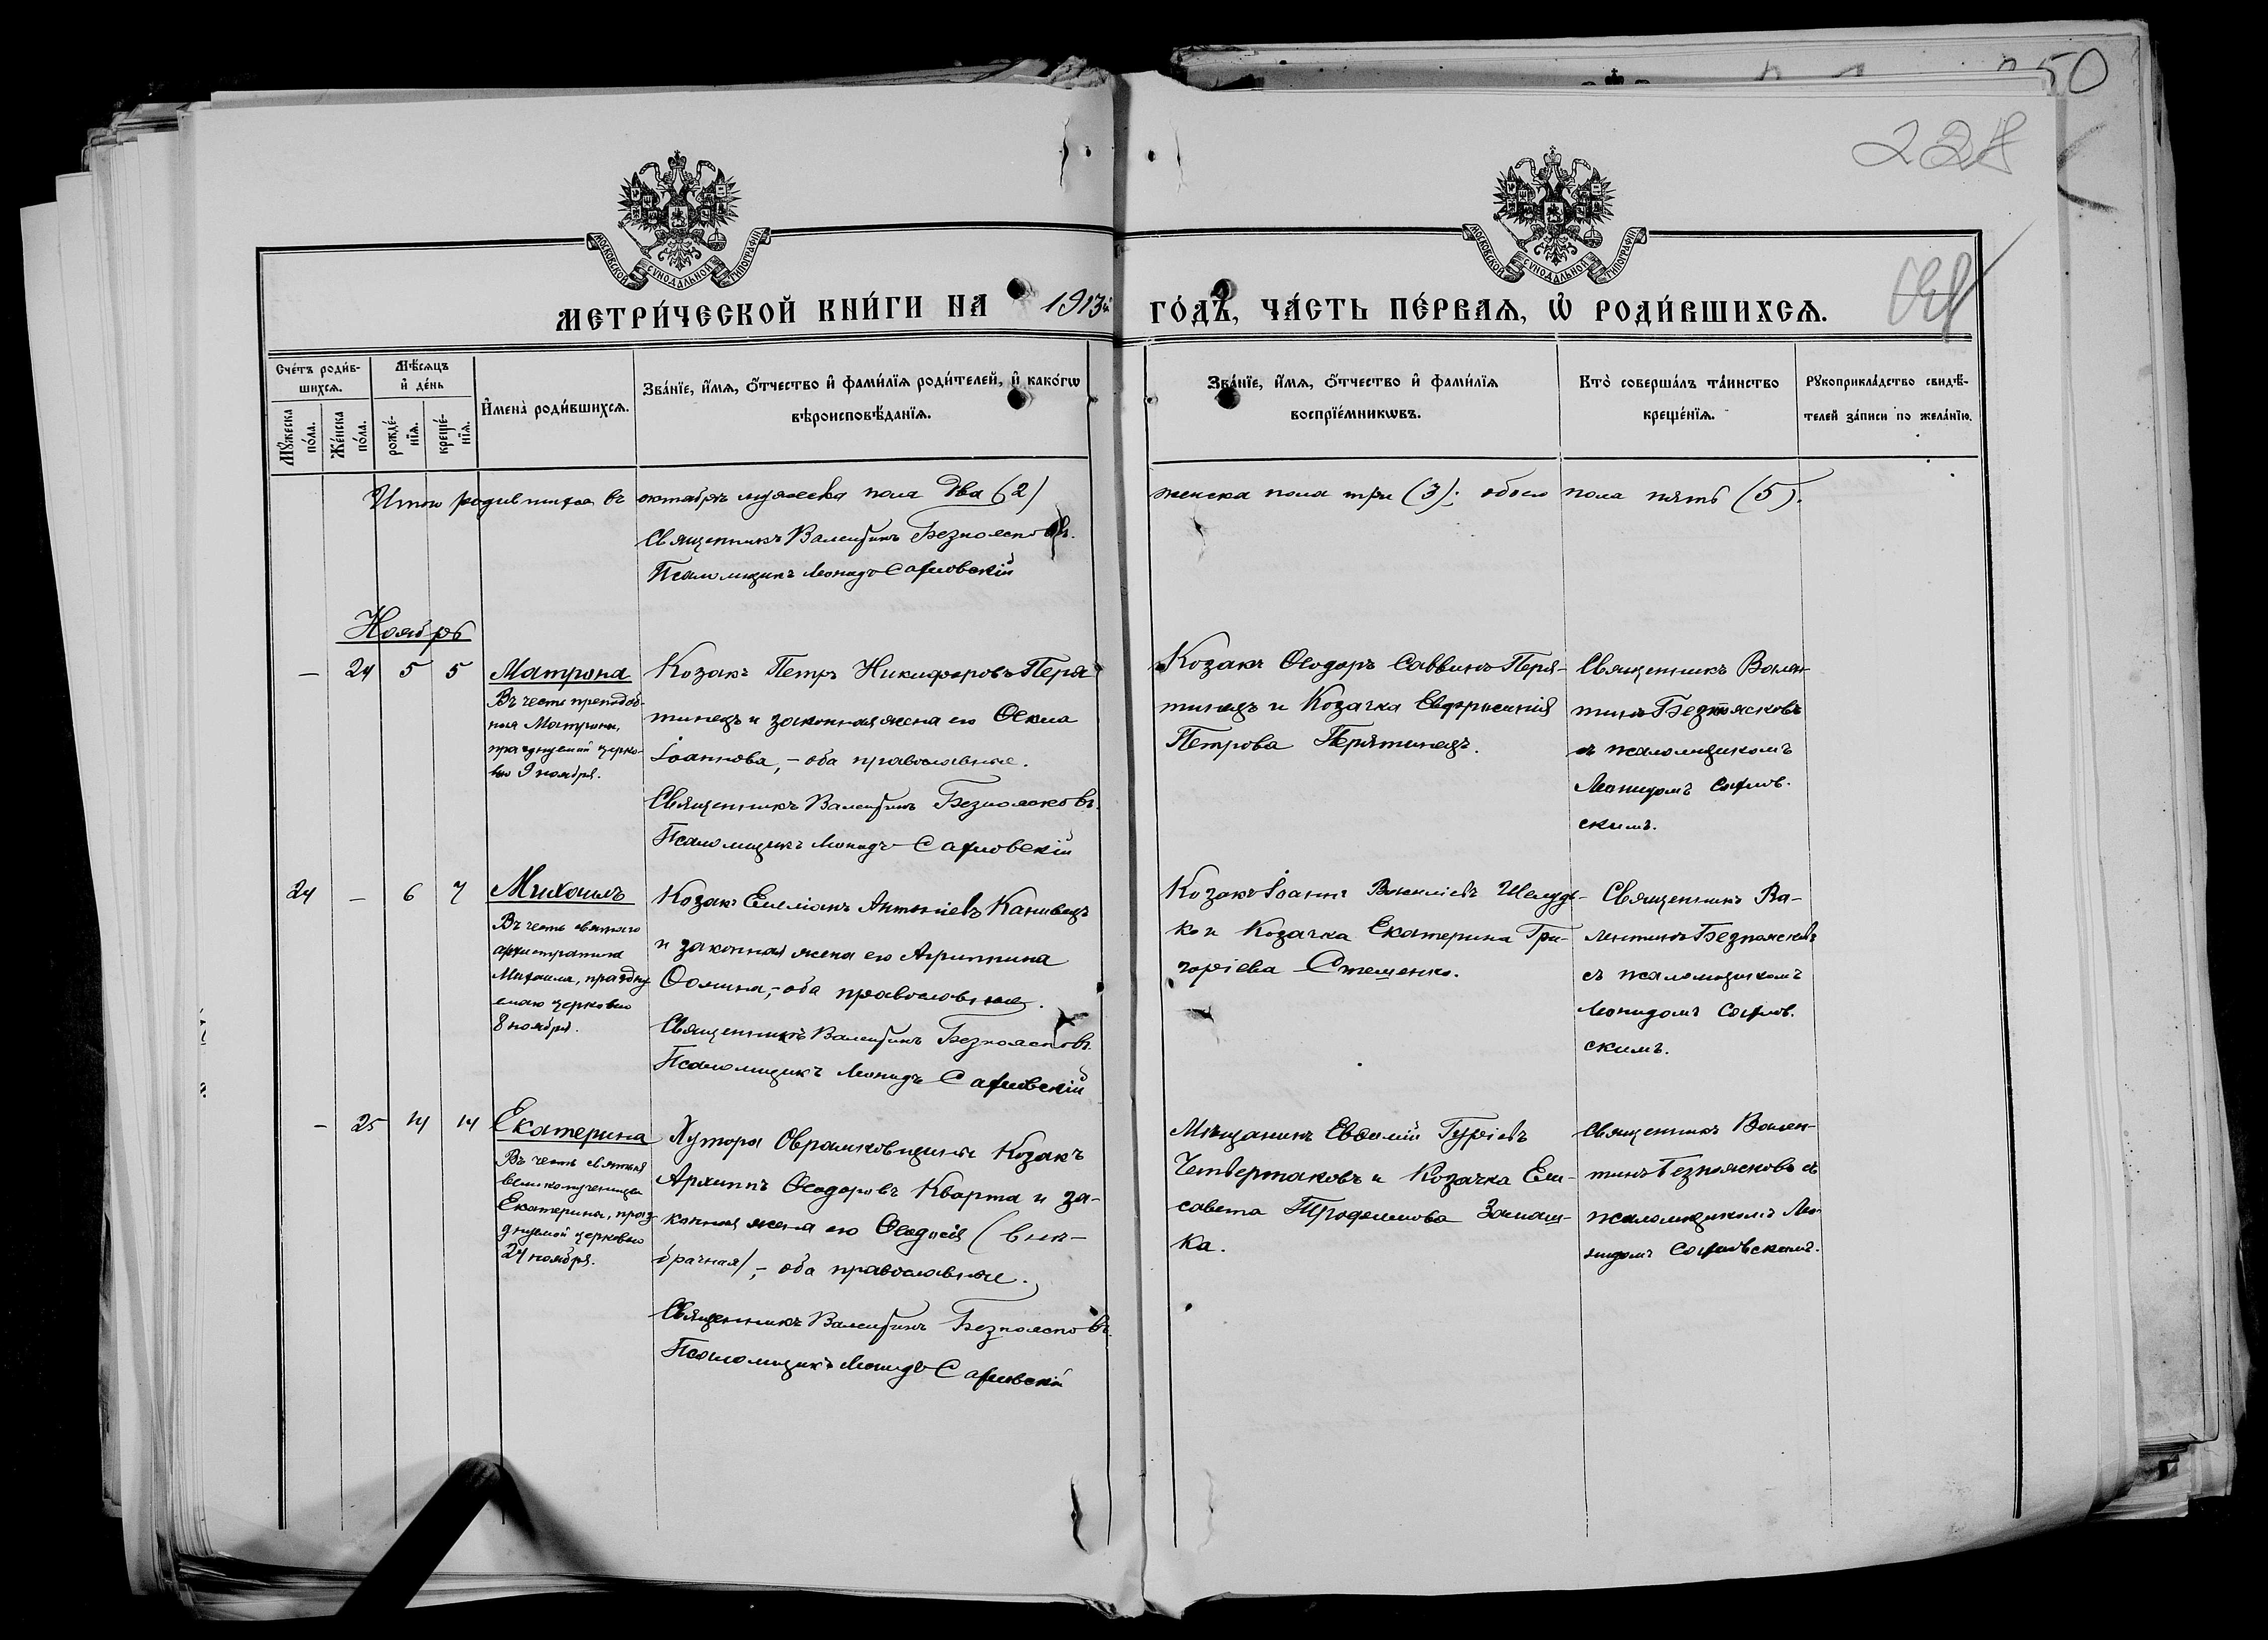 50
228
МОСКОВСКОЙ СѴНОДАЛЬНОЙ ТИПОГРАФІИ
МОСКОВСКОЙ СѴНОДАЛЬНОЙ ТИПОГРАФІИ
МЕТРИ́ЧЕСКОЙ КНИ́ГИ НА 1913й ГО́ДЪ, ЧА́СТЬ ПЕ́РВАѦ, Ѡ҆ РОДИ́ВШИХСѦ.
Сче́тъ роди́в-
шихсѧ.
Мꙋ́жеска по́ла.
Же́нска по́ла.
Мѣ́сѧцъ
и҆ де́нь
рожде́-
нїѧ.
креще́-
нїѧ.
И҆мена̀ роди́вшихсѧ.
Зва́нїе, и҆́мѧ, ѻ҆́тчество и҆ фами́лїѧ роди́телей, и҆ како́гѡ
вѣроисповѣ́данїѧ.
Зва́нїе, и҆́мѧ, ѻ҆́тчество и҆ фами́лїѧ
воспрїе́мникѡвъ.
Кто̀ соверша́лъ та́инство
креще́нїѧ.
Рꙋкоприкла́дство свидѣ́-
телей за́писи по жела́нїю.
Итого родившихся въ октябрѣ мужеска пола два (2) женска пола три (3); обоего пола пять (5).
Священникъ Валентинъ Безпоясковъ.
Псаломщикъ Леонидъ Сафновскій
Ноябрь
— 24 5 5
Матрона
Въ честь преподоб-
ныя Матроны,
празднуемой церко-
вію 9 ноября.
Козакъ Петръ Никифоровъ Перя-
тинецъ и законная жена его Ѳекла
Іоаннова, – оба православные.
Священникъ Валентинъ Безпоясковъ.
Псаломщикъ Леонидъ Сафновскій
Козакъ Ѳеодоръ Саввинъ Перя-
тинецъ и Козачка Евфросинія
Петрова Перятинецъ.
Священникъ Вален-
тинъ Безпоясковъ
съ псаломщикомъ
Леонидомъ Сафнов-
скимъ.
24 — 6 7
Михаилъ
Въ честь святаго
архистратига
Михаила, праздну
емаго церковію
8 ноября.
Козакъ Емеліанъ Антоніевъ Канивецъ
и законная жена его Агриппина
Ѳомина, – оба православные.
Священникъ Валентинъ Безпоясковъ.
Псаломщикъ Леонидъ Сафновскій
Козакъ Іоаннъ Василіевъ Шелудь-
ко и Козачка Екатерина Гри-
горіева Стешенко.
Священникъ Ва-
лентинъ Безпоясковъ
съ псаломщикомъ
Леонидомъ Сафнов-
скимъ.
— 25 14 14
Екатерина
Въ честь святыя
великомученицы
Екатерины, праз-
днуемой церковію
24 ноября.
Хутора Оврамковщины Козакъ
Архиппъ Ѳеодоровъ Кварта и за-
конная жена его Ѳеодосія (внѣ-
брачная), – оба православные.
Священникъ Валентинъ Безпоясковъ.
Псаломщикъ Леонидъ Сафновскій
Мѣщанинъ Евѳимій Гуріевъ
Четвертаковъ и Козачка Ели-
савета Трофимова Запаш-
ка.
Священникъ Вален-
тинъ Безпоясковъ съ
псаломщикомъ Лео-
нидомъ Сафновскимъ.